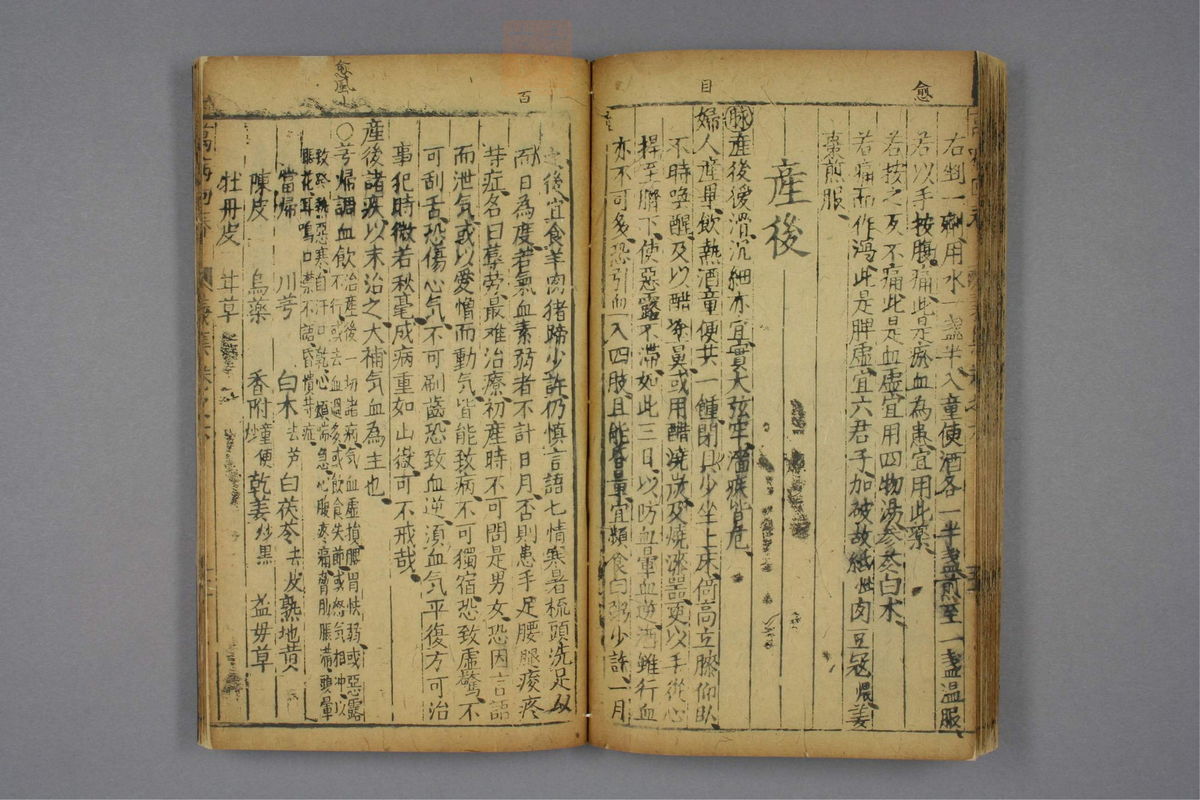 愈
目
右剉一劑用水一盞半入童便酒各一半盞煎至一盞溫服
若以手按腹痛此是瘀血為患宜用此藥
若按之不痛此是血虛宜用四物湯參苓白术
若痛而作瀉此是脾虛宜六君子加破故紙肉豆寇煨姜
棗煎服
產後
脉產後緩滑沉細亦宜實大弦牢濇疾皆危
婦人產畢飲熱酒童便共一鍾閉目少坐上床倚高立膝仰臥
不時喚醒及以醋塗鼻或用醋燒炭及燒漆器更以手從心
捍至臍下使惡露不滯如此三日以防血暈血逆酒雖行血
亦不可多恐引血入四肢且能昏暈宜頻食白粥少許一月
百
愈風
之後宜食羊肉猪蹄少許仍慎言語七情寒暑梳頭洗足以
百日為度若氣血素弱者不計日月否則患手足腰腿痠疼
等症名曰蓐勞最难治療初產時不可問是男女恐因言語
而泄气或以愛憎而動气皆能致病不可獨宿恐致虛驚不
可刮舌恐傷心气不可刷齒恐致血逆須血气平復方可治
事犯時微若秋毫成病重如山嶽可不戒哉
產後諸疾以末治之大補气血為主也
○芎歸調血飲治產後一切諸病气血虛損脾胃怯弱或惡露
不行或去血過多或飲食失節或怒气相冲以
致發熱惡寒自汗口乾心煩喘急心腹疼痛脅肋脹滿頭暈
眼花耳鳴口禁不語昏憒等症
當歸 川芎 白木去芦 白茯苓去皮 熟地黃
陳皮 烏藥 香附童便炒 乾姜炒黑 益母草
牡丹皮 甘草